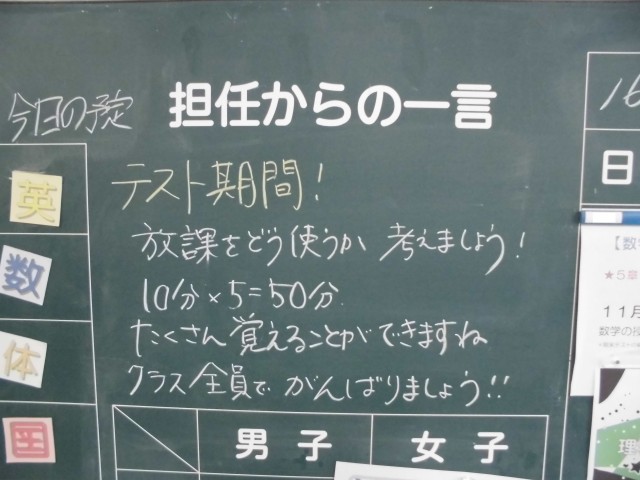 今日の予定
担任からの一言
英
数
体
国
テスト期間!
放課をどう使うか 考えましょう!
10分×5=50分
たくさん覚えることができますね
クラス全員で がんばりましょう!!
男子
女子
16
日
【数
★5章
11月
数学の授
理